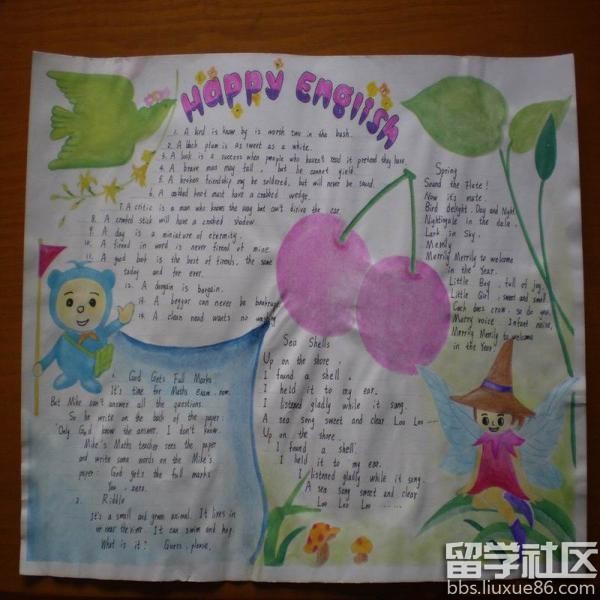 Happy English
1. A bird is know by is worth two in the bush.
2. A black plum is as sweet as a white.
3. A book is a success when people who haven't read it pretend they have.
4. A brave man may fall, but he cannot yield.
5. A broken friendship may be soldered, but will never be sound.
6. A crabbed knot must have a crabbed wedge.
7. A critic is a man who knows the way but can't drive the car
8. A crooked stick will have a crooked shadow
9. A day is a miniature of eternity.
10. A friend in word is never friend of mine.
11. A good book is the best of friends, the same
today and for ever.
12. A bargain is bargain.
A beggar can never be bankrupt
14. A clean hand wants no washing
Spring
Sound the Flute!
Now it's mute.
Bird delight. Day and Night
Nightingale in the dale.
Lark in Sky.
Merrily
Merrily Merrily to welcome
in the Year.
Little Boy, full of joy,
Little Girl, sweet and small
Cock does crow, so do you,
Merry voice Infant noise,
Merrily Merrily to welcome
in the Year!
Sea Shells
Up on the shore,
I found a shell,
I held it to my ear.
I listened gladly while it sang.
A sea song sweet and clear Loo Loo
Up on the shore.
I found a shell
I held it to my ear.
I listened gladly while it sang.
A sea song sweet and clear
Loo Loo Loo ......
God Gets Full Marks
It's time for Maths Exam now.
But Mike can't answer all the questions.
So he write on the back of the paper:
"Only God know the answer. I don't know.
Mike's Maths teacher sees the paper
and write some words on the Mike's
paper: God gets the full marks
You, zero.
2. Riddle
It's a small and green animal. It lives in
or near the river. It can swim and hop.
What is it? Guess, please.
留学社区
bbs.liuxue86.com